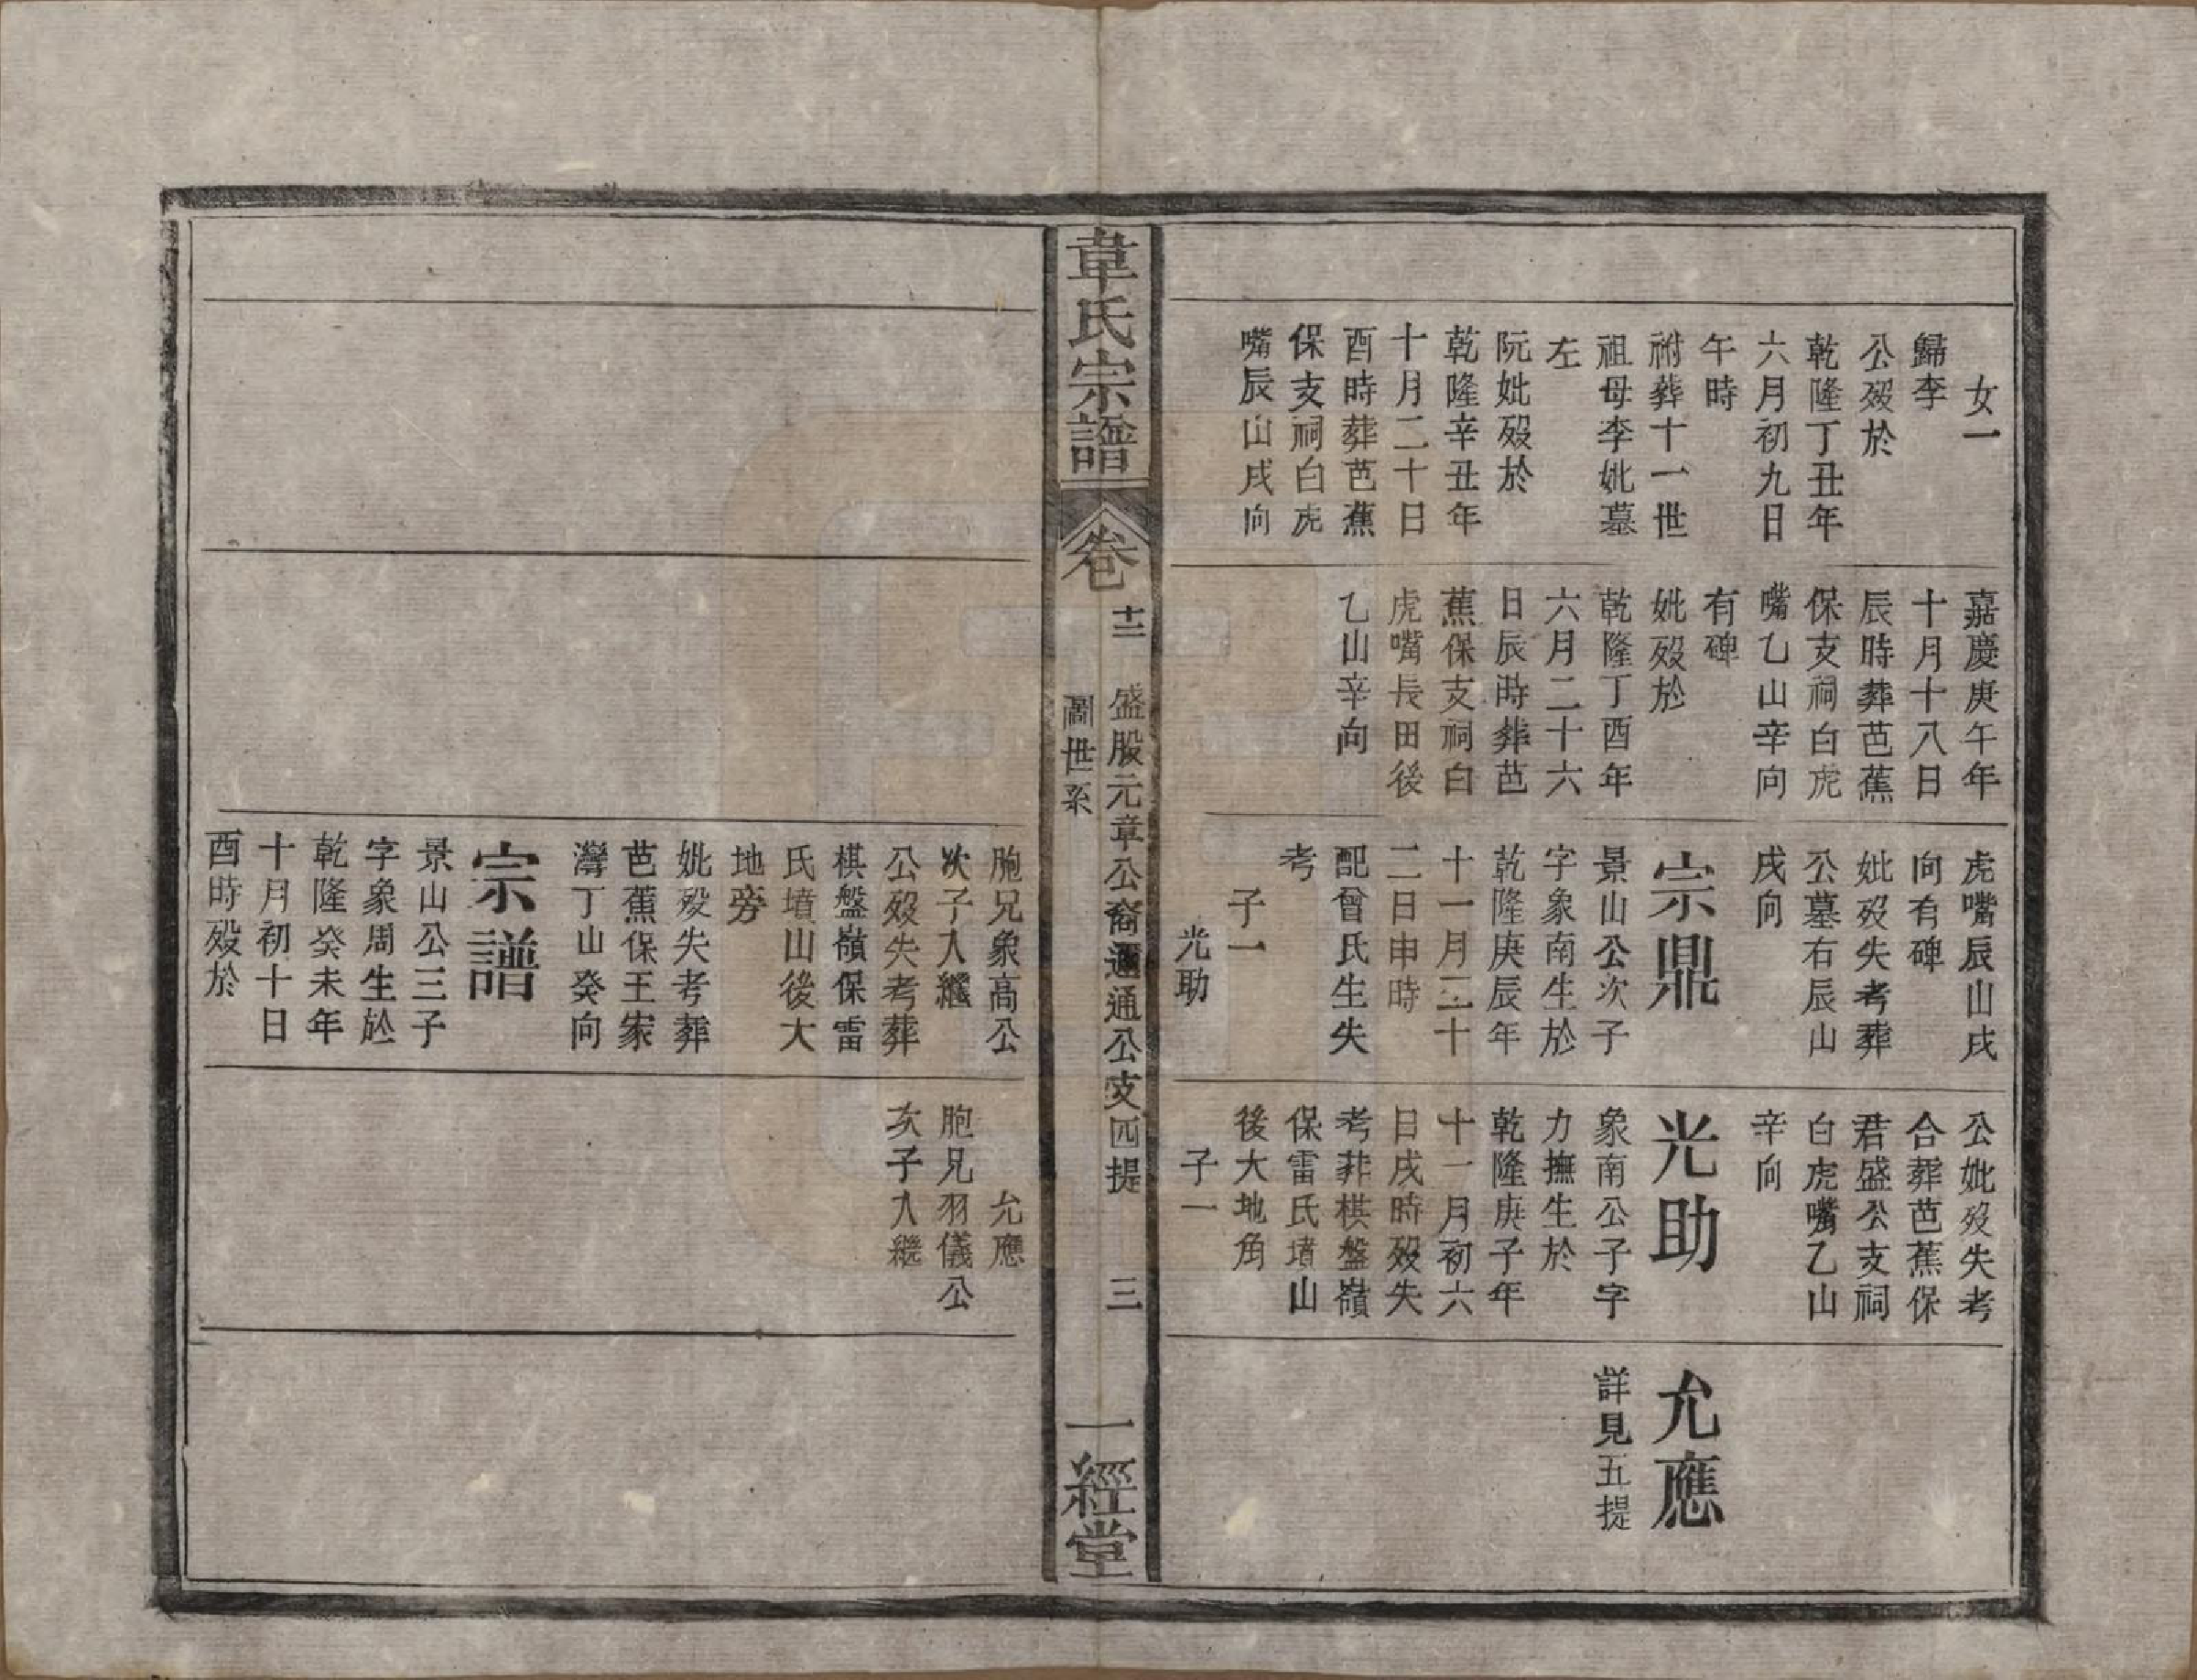 女一
歸李
公歿於
乾隆丁丑年
六月初九日
午時
祔葬十一世
祖母李妣墓
左
阮妣歿於
乾隆辛丑年
十月二十日
酉時葬芭蕉
保支祠白虎
嘴辰山戌向
嘉慶庚午年
十月十八日
辰時葬芭蕉
保支祠白虎
嘴乙山辛向
有碑
妣歿於
乾隆丁酉年
六月二十六
日辰時葬芭
蕉保支祠白
虎嘴長田後
乙山辛向
虎嘴辰山戌
向有碑
妣歿失考葬
公墓右辰山
戌向
宗鼎
景山公次子
字象南生於
乾隆庚辰年
十一月二十
二日申時
配曾氏生失
考
子一
光助
公妣歿失考
合葬芭蕉保
君盛公支祠
白虎嘴乙山
辛向
光助
象南公子字
力撫生於
乾隆庚子年
十一月初六
日戌時歿失
考葬棋盤嶺
保雷氏墳山
後大地角
子一
允應
詳見五提
韋氏宗譜
卷
十二
盛股元章公裔邇通公支四提
圖世系
三
一經堂
胞兄象高公
次子入繼
公歿失考葬
棋盤嶺保雷
氏墳山後大
地旁
妣歿失考葬
芭蕉保王家
灣丁山癸向
宗譜
景山公三子
字象周生於
乾隆癸未年
十月初十日
酉時歿於
允應
胞兄羽儀公
次子入繼